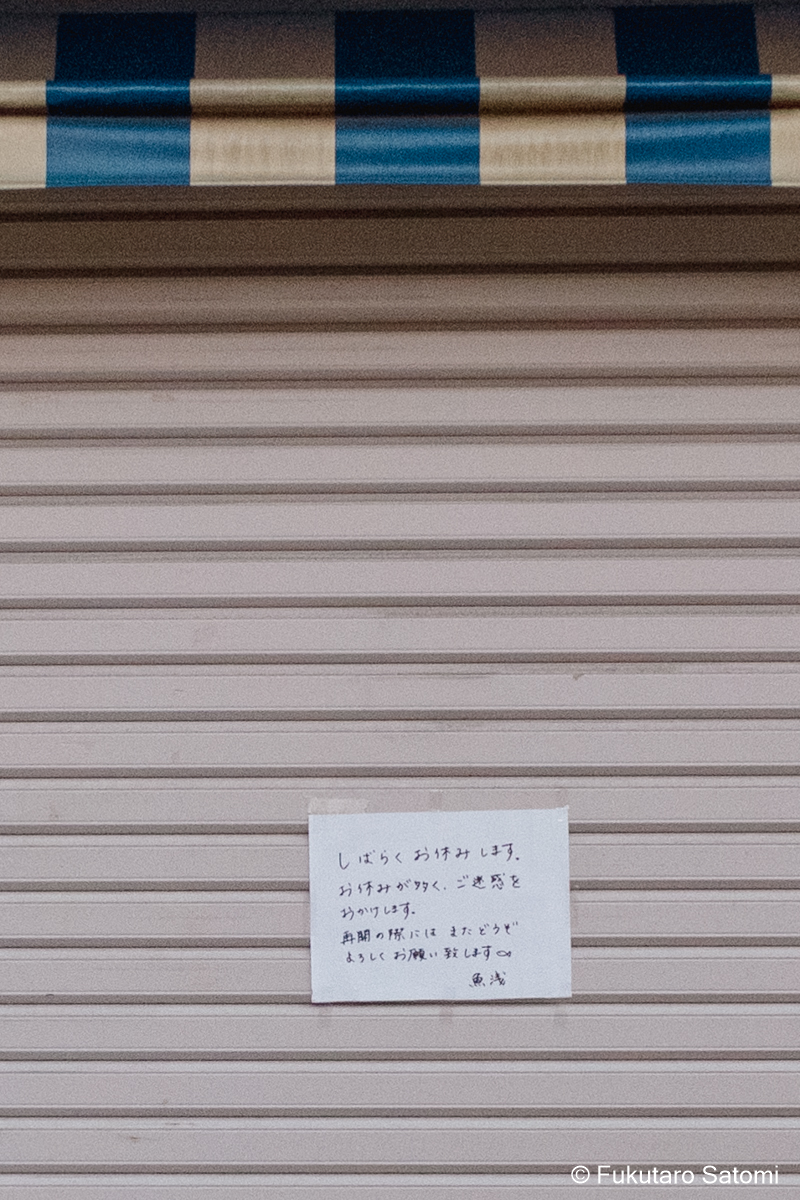 しばらくお休みします。
お休みが多く、ご迷惑を
おかけします。
再開の際には またどうぞ
よろしくお願い致します
魚浅
© Fukutaro Satomi